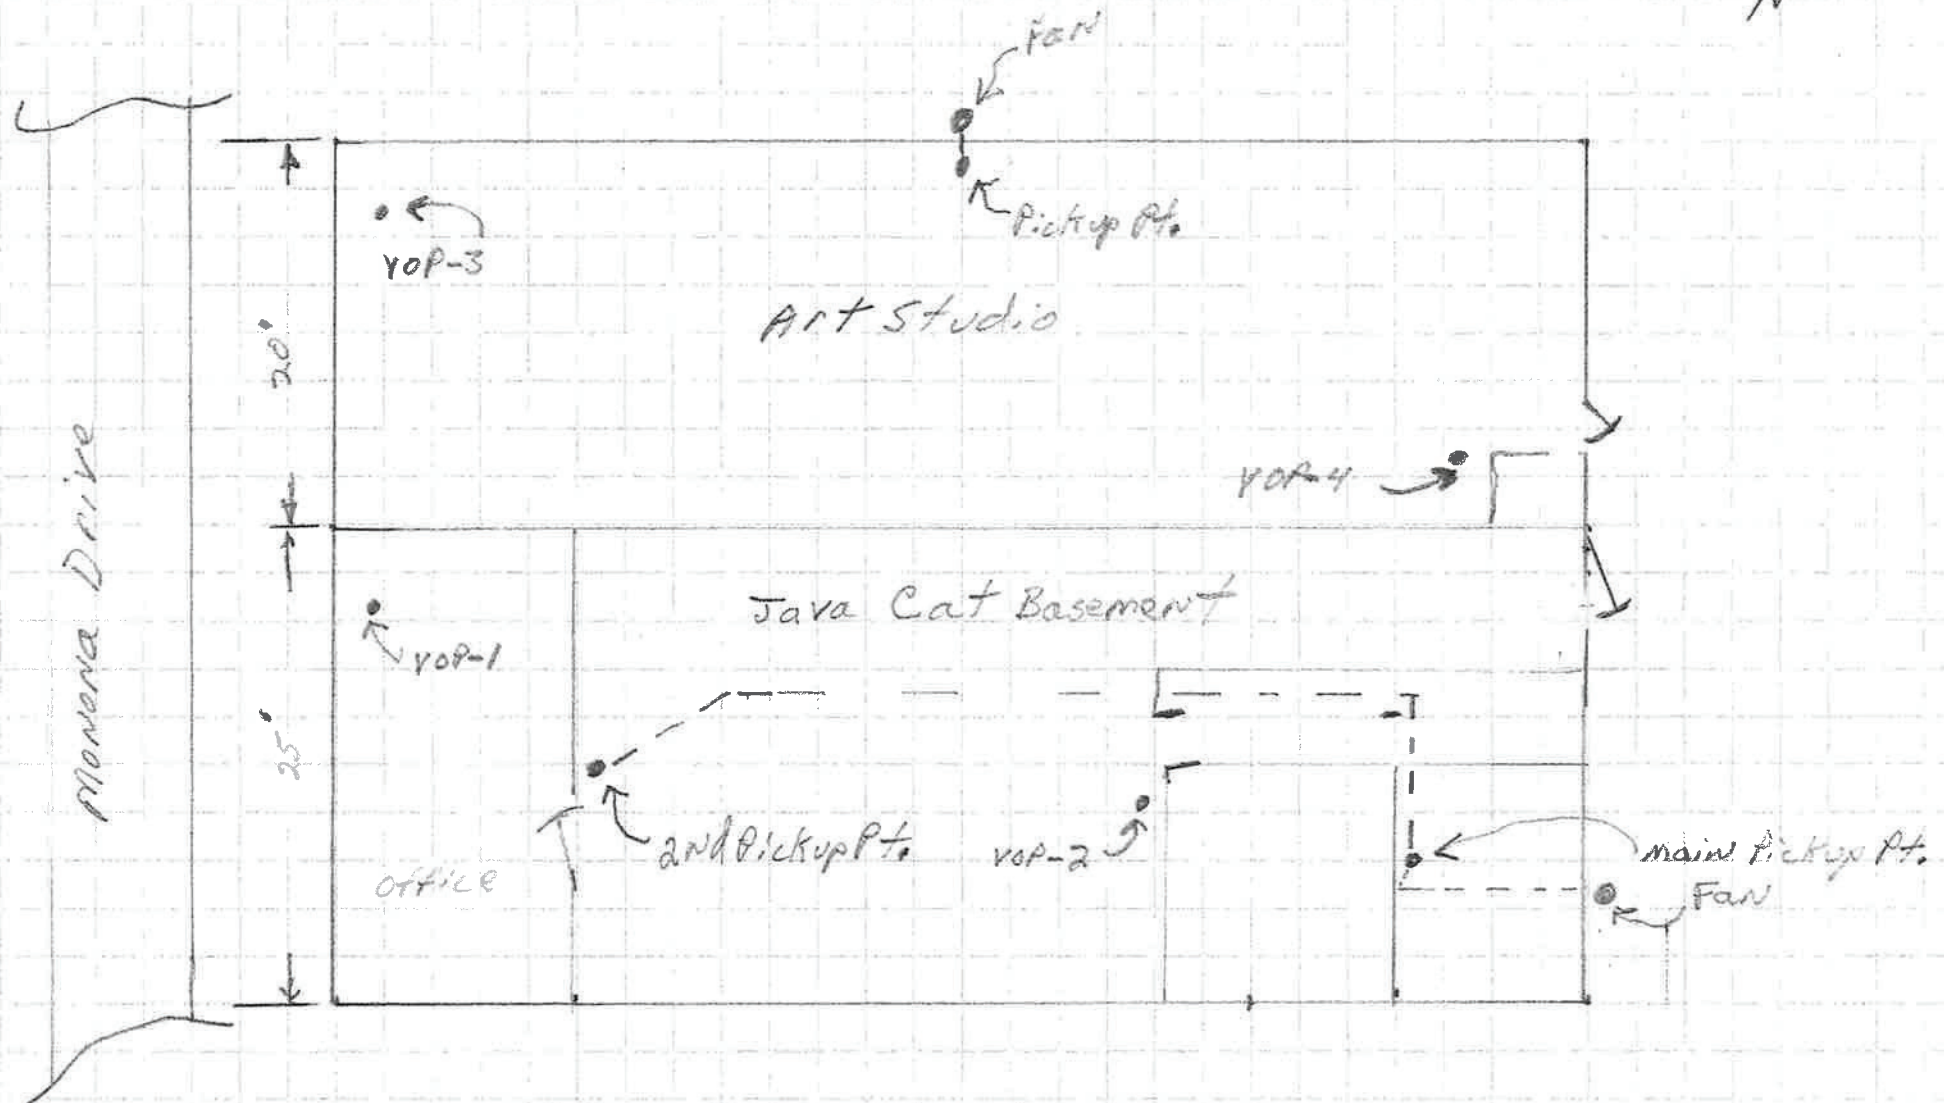 Fan
Pickup Pt.
VOP-3
Art Studio
20'
VOP-4
Monona Drive
Java Cat Basement
VOP-1
25'
2nd Pickup Pt.
VOP-2
Main Pickup Pt.
Office
Fan